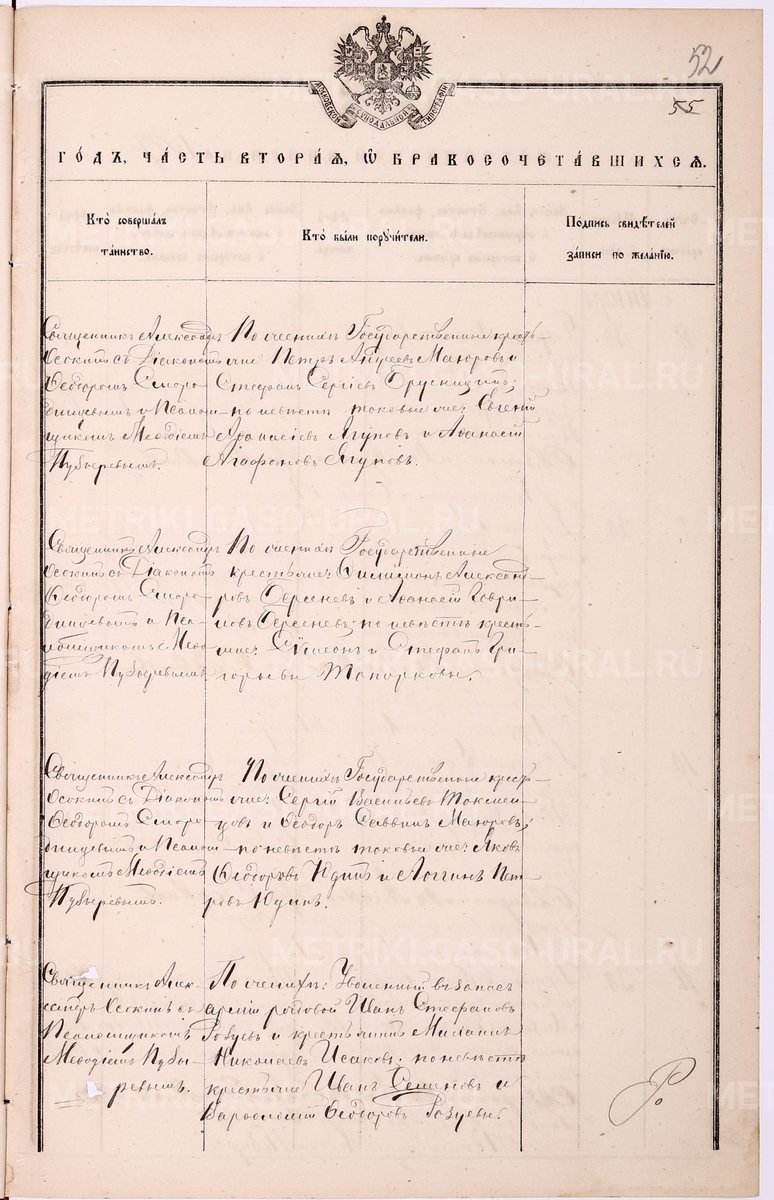 52
55
МОСКОВСКОЙ СѴНОДАЛЬНОЙ ТИПОГРАФІИ
ГО́ДЪ, ЧА́СТЬ ВТОРА́Ѧ, Ѡ҆ БРАКОСОЧЕТА́ВШИХСѦ.
Кто̀ соверша́лъ
та́инство.
Кто̀ бы́ли порꙋчи́тели.
По́дпись свидѣ́телей
за́писи по жела́нїю.
Священникъ Александръ
Осокинъ съ Діакономъ
Ѳеодоромъ Сморо-
динцевымъ и Псалом-
щикомъ Меѳодіемъ
Пузыревымъ.
По женихѣ Государственные кресть-
яне: Петръ Андреевъ Маюровъ и
Стефанъ Сергіевъ Брусницынъ;
по невѣстѣ таковые же: Евгеній
Аѳанасіевъ Ягуповъ и Аѳанасій
Агафоновъ Ягуповъ.
Священникъ Александръ
Осокинъ съ Діакономъ
Ѳеодоромъ Сморо-
динцевымъ и Пса-
ломщикомъ Меѳо-
діемъ Пузыревымъ
По женихѣ Государственные
крестьяне: Филимонъ Александ-
ровъ и Аѳанасій Гаври-
ловъ по невѣстѣ кресть-
яне: Сѵмеонъ и Стефанъ Гри-
горьевы Топорковы.
Священникъ Александръ
Осокинъ съ Діакономъ
Ѳеодоромъ Сморо-
динцевымъ и Псалом-
щикомъ Меѳодіемъ
Пузыревымъ.
По женихѣ Государственные кресть-
яне: Сергій Васильевъ
и Ѳеодоръ Саввинъ Маюровъ;
по невѣстѣ таковые же: Яковъ
Ѳеодоровъ Юдинъ и Логгинъ Пет-
ровъ Юдинъ.
Священникъ Алек-
сандръ Осокинъ съ
Псаломщикомъ
Меѳодіемъ Пузы-
ревымъ.
По женихѣ: Уволенный въ запасъ
арміи рядовой Иванъ Стефановъ
и крестьянинъ Михаилъ
Николаевъ Исаковъ; по невѣстѣ
крестьяне Иванъ Семеновъ и
Варѳоломій Ѳеодоровъ
METRIKI.GASO-URAL.RU